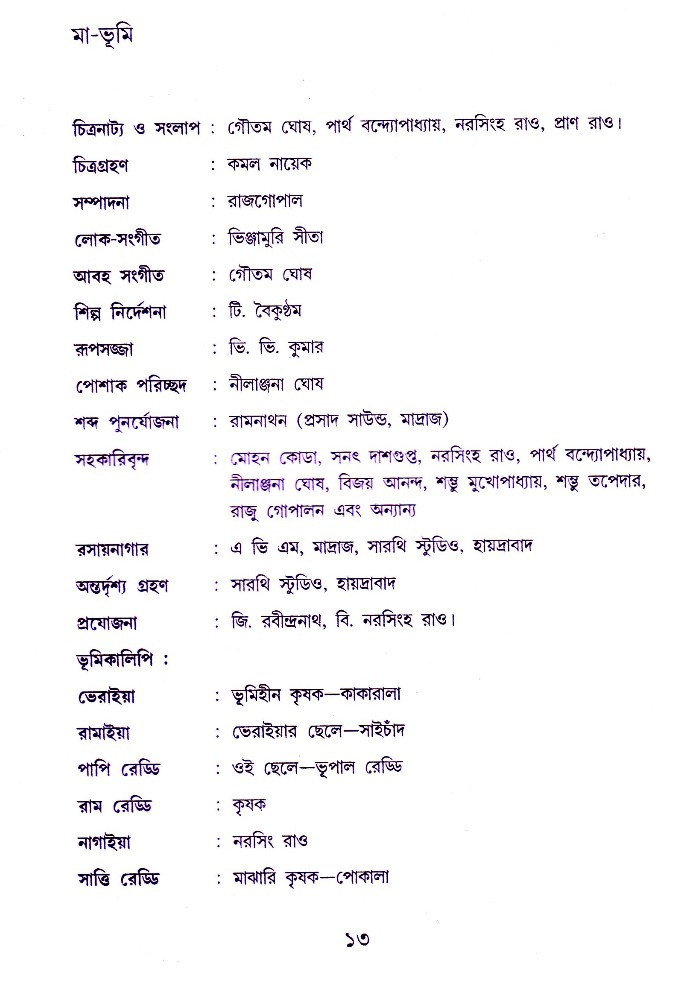 মা-ভূমি
চিত্রনাট্য ও সংলাপ : গৌতম ঘোষ, পার্থ বন্দ্যোপাধ্যায়, নরসিংহ রাও, প্রাণ রাও।
চিত্রগ্রহণ : কমল নায়েক
সম্পাদনা : রাজগোপাল
লোক-সংগীত : ভিঞ্জামুরি সীতা
আবহ সংগীত : গৌতম ঘোষ
শিল্প নির্দেশনা : টি. বৈকুণ্ঠম
রূপসজ্জা : ভি. ভি. কুমার
পোশাক পরিচ্ছদ : নীলাঞ্জনা ঘোষ
শব্দ পুনর্যোজনা : রামনাথন (প্রসাদ সাউন্ড, মাদ্রাজ)
সহকারিবৃন্দ : মোহন কোডা, সনৎ দাশগুপ্ত, নরসিংহ রাও, পার্থ বন্দ্যোপাধ্যায়,
নীলাঞ্জনা ঘোষ, বিজয় আনন্দ, শম্ভু মুখোপাধ্যায়, শম্ভু তপেদার,
রাজু গোপালন এবং অন্যান্য
রসায়নাগার : এ ভি এম, মাদ্রাজ, সারথি স্টুডিও, হায়দ্রাবাদ
অন্তর্দৃশ্য গ্রহণ : সারথি স্টুডিও, হায়দ্রাবাদ
প্রযোজনা : জি. রবীন্দ্রনাথ, বি. নরসিংহ রাও।
ভূমিকালিপি :
ভেরাইয়া : ভূমিহীন কৃষক—কাকারালা
রামাইয়া : ভেরাইয়ার ছেলে—সাইচাঁদ
পাপি রেড্ডি : ওই ছেলে—ভূপাল রেড্ডি
রাম রেড্ডি : কৃষক
নাগাইয়া : নরসিং রাও
সাত্তি রেড্ডি : মাঝারি কৃষক—পোকালা
১৩